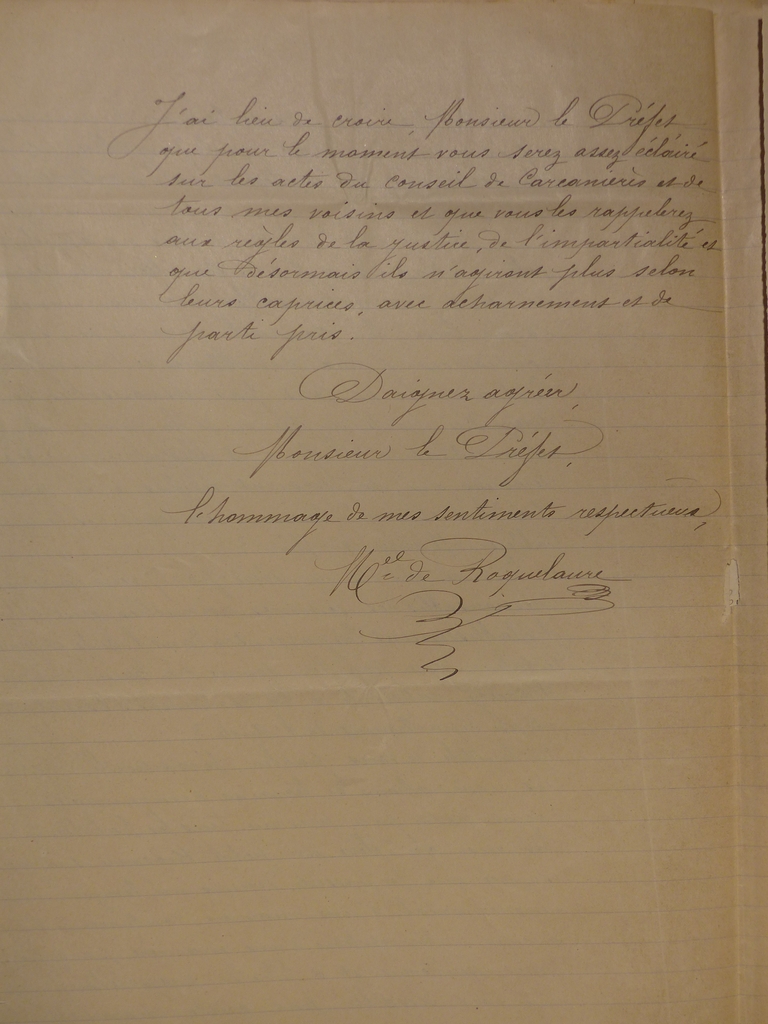 J'ai lieu de croire, Monsieur le Préfet
que pour le moment vous serez assez éclairé
sur les actes du conseil de Carcanières et de
tous mes voisins et que vous les rappelerez
aux règles de la justice, de l'impartialité et
que désormais ils n'agiront plus selon
leurs caprices, avec acharnement et de
parti pris.
Daignez agréer,
Monsieur le Préfet,
l'hommage de mes sentiments respectueux,
de Roquelaure